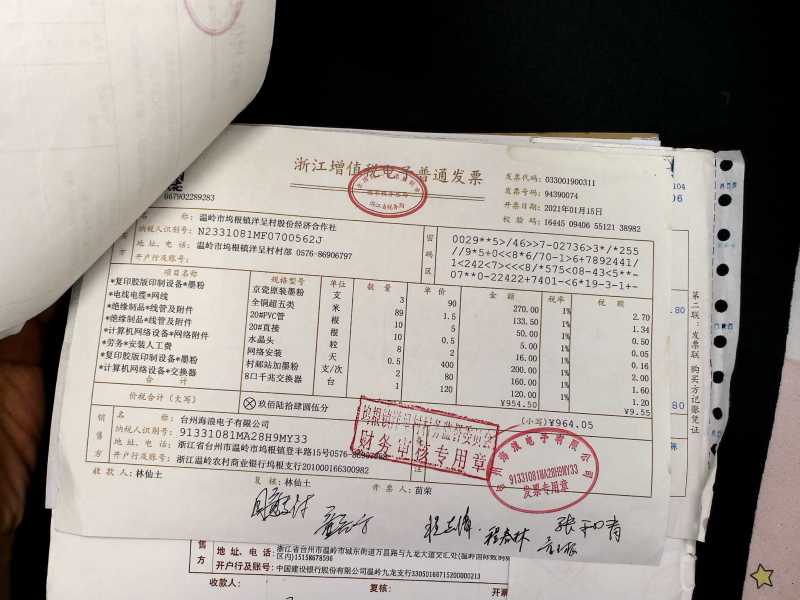 浙江增值税电子普通发票
667902289283
发票代码: 033001900311
发票号码: 94390074
开票日期: 2021年01月15日
校验码: 16445 09406 55121 38982
名 称: 温岭市坞根镇洋呈村股份经济合作社
纳税人识别号: N2331081MF0700562J
地 址、电 话: 温岭市坞根镇洋呈村村部 0576-86906797
开户行及账号:
密码区
0029**5>/46>>7-02736>3*/*255
//9*5+0<<8*6/70-1>6+7892441/
1<242<7><<<8/*575<08-43<5**-
07**0-22422+7401-<6*19-3-1+-
项目名称 规格型号 单位 数 量 单 价 金 额 税率 税 额
*复印胶版印制设备*墨粉 京瓷原装墨粉 支 3 90 270.00 1% 2.70
*电线电缆*网线 全铜超五类 米 89 1.5 133.50 1% 1.34
*绝缘制品*线管及附件 20#PVC管 根 10 5 50.00 1% 0.50
*绝缘制品*线管及附件 20#直接 根 10 0.5 5.00 1% 0.05
*计算机网络设备*网络附件 水晶头 粒 8 2 16.00 1% 0.16
*劳务*安装人工费 网络安装 天 0.5 400 200.00 1% 2.00
*复印胶版印制设备*墨粉 村邮站加墨粉 支/次 2 80 160.00 1% 1.60
*计算机网络设备*交换器 8口千兆交换器 台 1 120 120.00 1% 1.20
合 计 ¥954.50 ¥9.55
价税合计(大写) ⊗玖佰陆拾肆圆伍分 (小写)¥964.05
销售方
名 称: 台州海浪电子有限公司
纳税人识别号: 91331081MA28H9MY33
地 址、电 话: 浙江省台州市温岭市坞根镇登丰路15号0576-
开户行及账号: 浙江温岭农村商业银行坞根支行201000166300982
收 款 人: 林仙土
复 核: 林仙土
开 票 人: 苗荣
第二联:发票联 购买方记账凭证
财务审核专用章
台州海浪电子有限公司
91331081MA28H9MY33
发票专用章
程春林
104
.80
.80
售方
地 址、电 话: 浙江省台州市温岭市城东街道万昌路与九龙大道交汇处
区内)15158678596
开户行及账号: 中国建设银行股份有限公司温岭九龙支行33050166715200000213
收款人:
复核:
开票